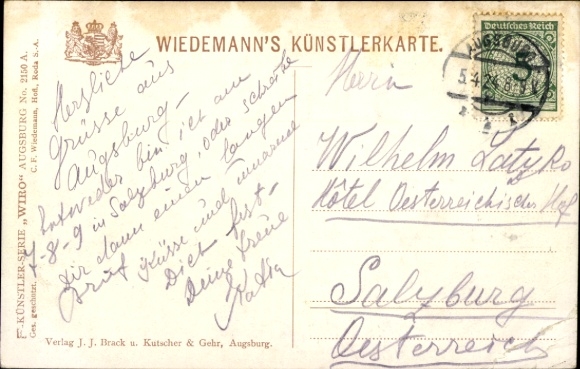 WIEDEMANN'S KÜNSTLERKARTE.
Deutsches Reich
AUGSBURG
5.4.24
Herzliche
Grüsse aus
Augsburg –
Entweder bin ich am
7-8-9 in Salzburg, oder schreibe
Dir dann einen langen
Brief Küsse und
Dich fest –
Deine treue
Katia
Herrn
Wilhelm Latzko
Hôtel Oesterreichischer Hof
Salzburg
Oesterreich
Verlag J. J. Brack u. Kutscher & Gehr, Augsburg.
KÜNSTLER-SERIE „WIRO" AUGSBURG No. 2150 A.
Ges. geschützt. C. F. Wiedemann, Hofl., Roda S.-A.